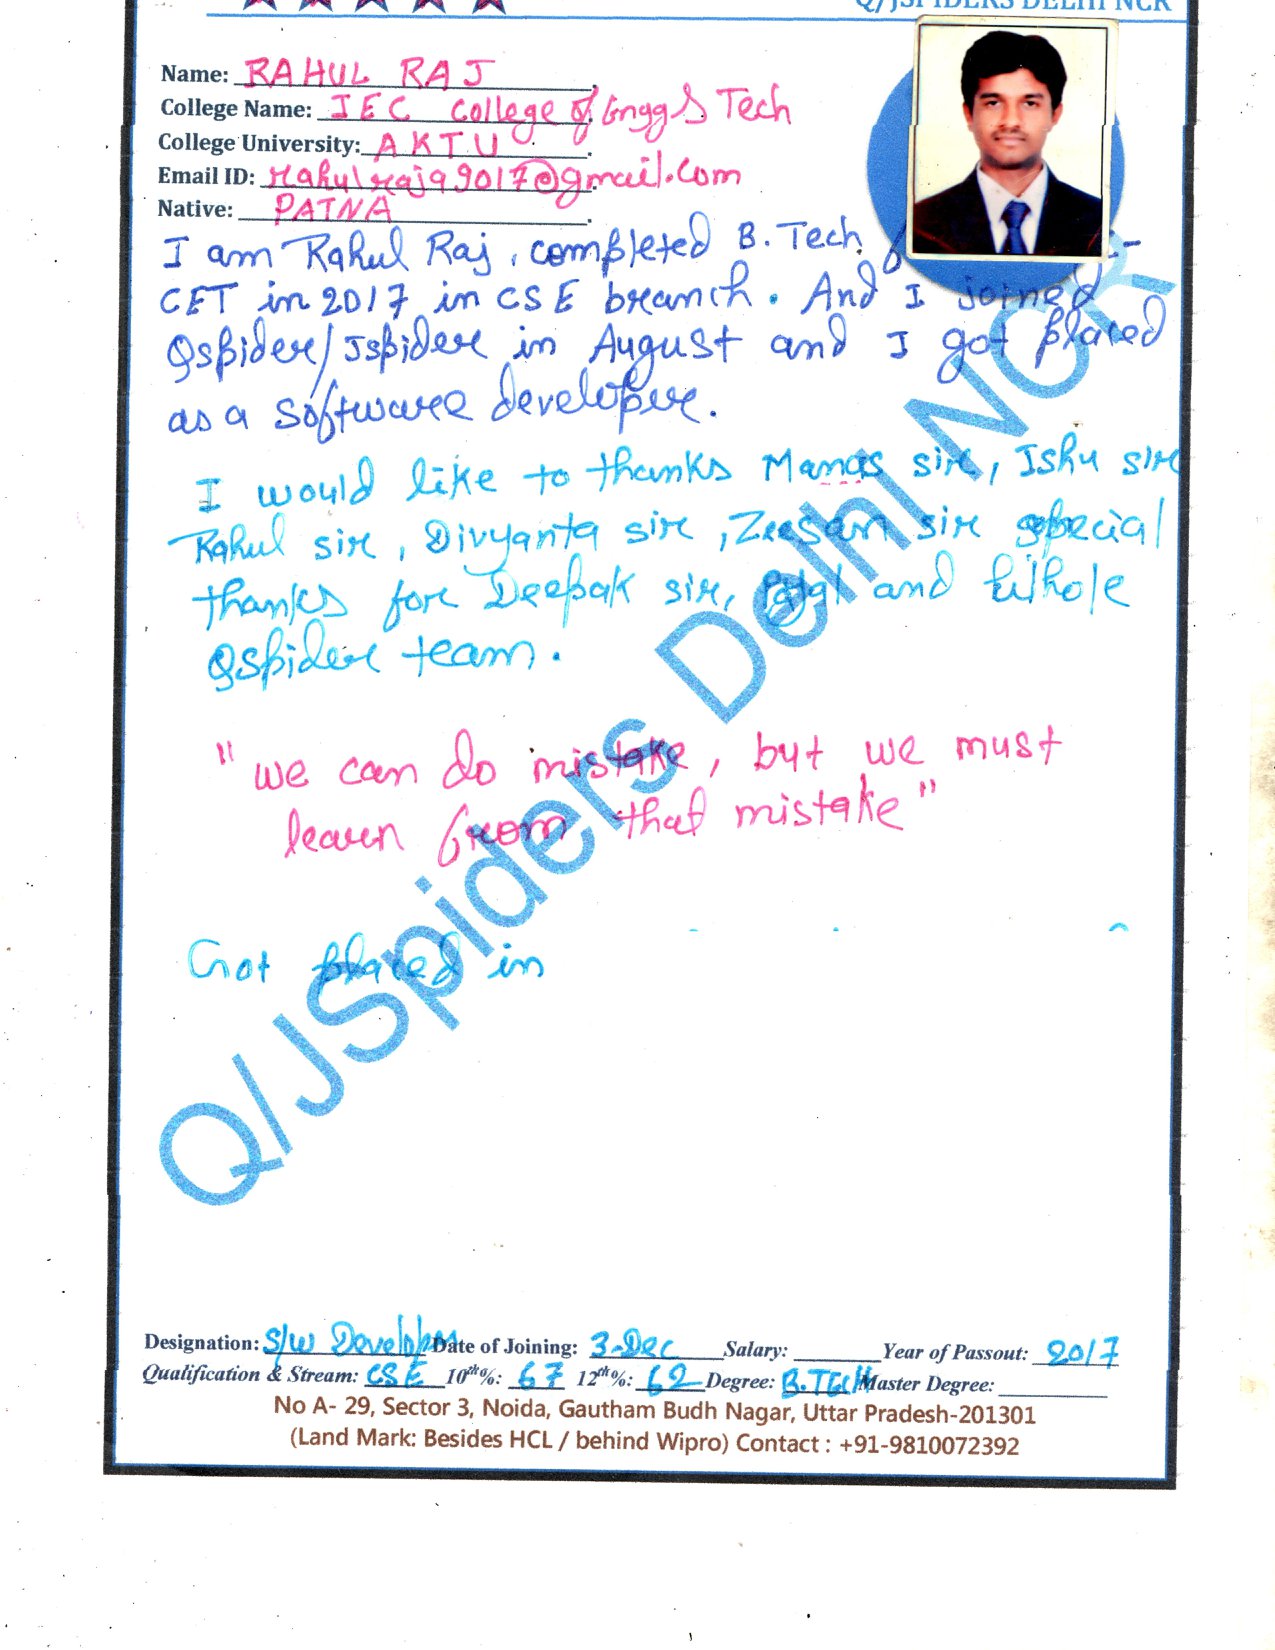 Q/JSPIDERS DELHI NCR
Name: RAHUL RAJ
College Name: IEC College of Engg & Tech
College University: AKTU
Email ID: rahulraja9017@gmail.com
Native: PATNA
I am Rahul Raj, completed B.Tech
CET in 2017 in CSE branch. And I joined
Qspider/Jspider in August and I got placed
as a software developer.
I would like to thanks Manas sir, Ishu sir
Rahul sir, Divyanta sir, Zeesan sir special
thanks for Deepak sir, and Whole
QSpider team.
"we can do mistake, but we must
learn from that mistake"
Got placed in
Q/JSpiders Delhi NCR
Designation: S/W Developer Date of Joining: 3-Dec Salary: Year of Passout: 2017
Qualification & Stream: CSE 10th%: 67 12th%: 62 Degree: B.TECH Master Degree:
No A- 29, Sector 3, Noida, Gautham Budh Nagar, Uttar Pradesh-201301
(Land Mark: Besides HCL / behind Wipro) Contact : +91-9810072392